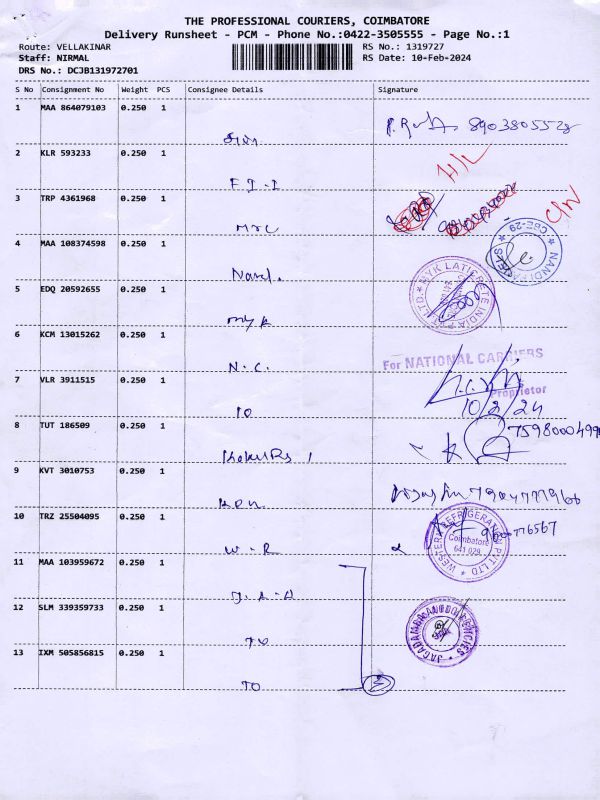 THE PROFESSIONAL COURIERS, COIMBATORE
Delivery Runsheet - PCM - Phone No.:0422-3505555 - Page No.:1
Route: VELLAKINAR
RS No.: 1319727
Staff: NIRMAL
RS Date: 10-Feb-2024
DRS No.: DCJB131972701
S No Consignment No Weight PCS Consignee Details Signature
1 MAA 864079103 0.250 1
8903805528
2 KLR 593233 0.250 1
H/L
3 TRP 4361968 0.250 1
C/N
4 MAA 108374598 0.250 1
Nand.
5 EDQ 20592655 0.250 1
NYK LATICRETE INDIA
myk
6 KCM 13015262 0.250 1
N.C.
For NATIONAL CARRIERS
7 VLR 3911515 0.250 1
Proprietor
10/2/24
TO
8 TUT 186509 0.250 1
9 KVT 3010753 0.250 1
10 TRZ 25504095 0.250 1
WESTERN REFRIGERATION PVT LTD
Coimbatore
641 029
W.R
11 MAA 103959672 0.250 1
12 SLM 339359733 0.250 1
JAGADAMBA AGENCIES
TO
13 IXM 505856815 0.250 1
TO